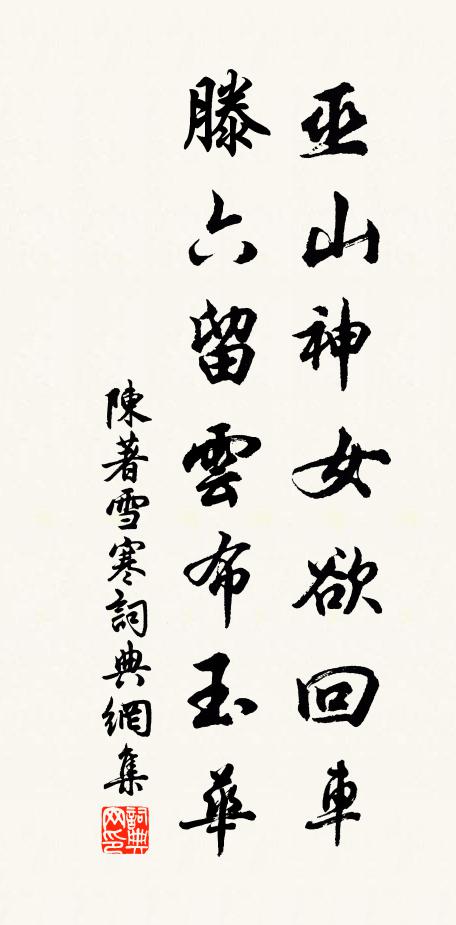 巫山神女欲回車
滕六留雲布玉華
陳著雪寒詞典網集
詞典网印